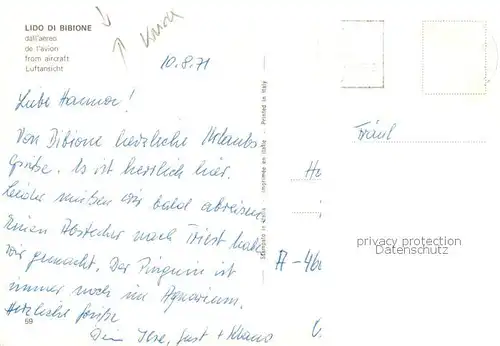 LIDO DI BIBIONE
dall'aereo
de l'avion
from aircraft
Luftansicht
10.8.71
Liebe Hannor!
Von Bibione herzliche Urlaubs
Grüße. Es ist herrlich hier.
Leider müßen wir bald abreisen
Einen Abstecher nach Triest hab
wir gemacht. Der Pinguin ist
immer noch im Aquarium.
Herzliche Grüße
69
Ilse, Gust +
Stampato in Italia - Imprimée en Italie - Printed in Italy
Fräul
A-460
privacy protection
Datenschutz